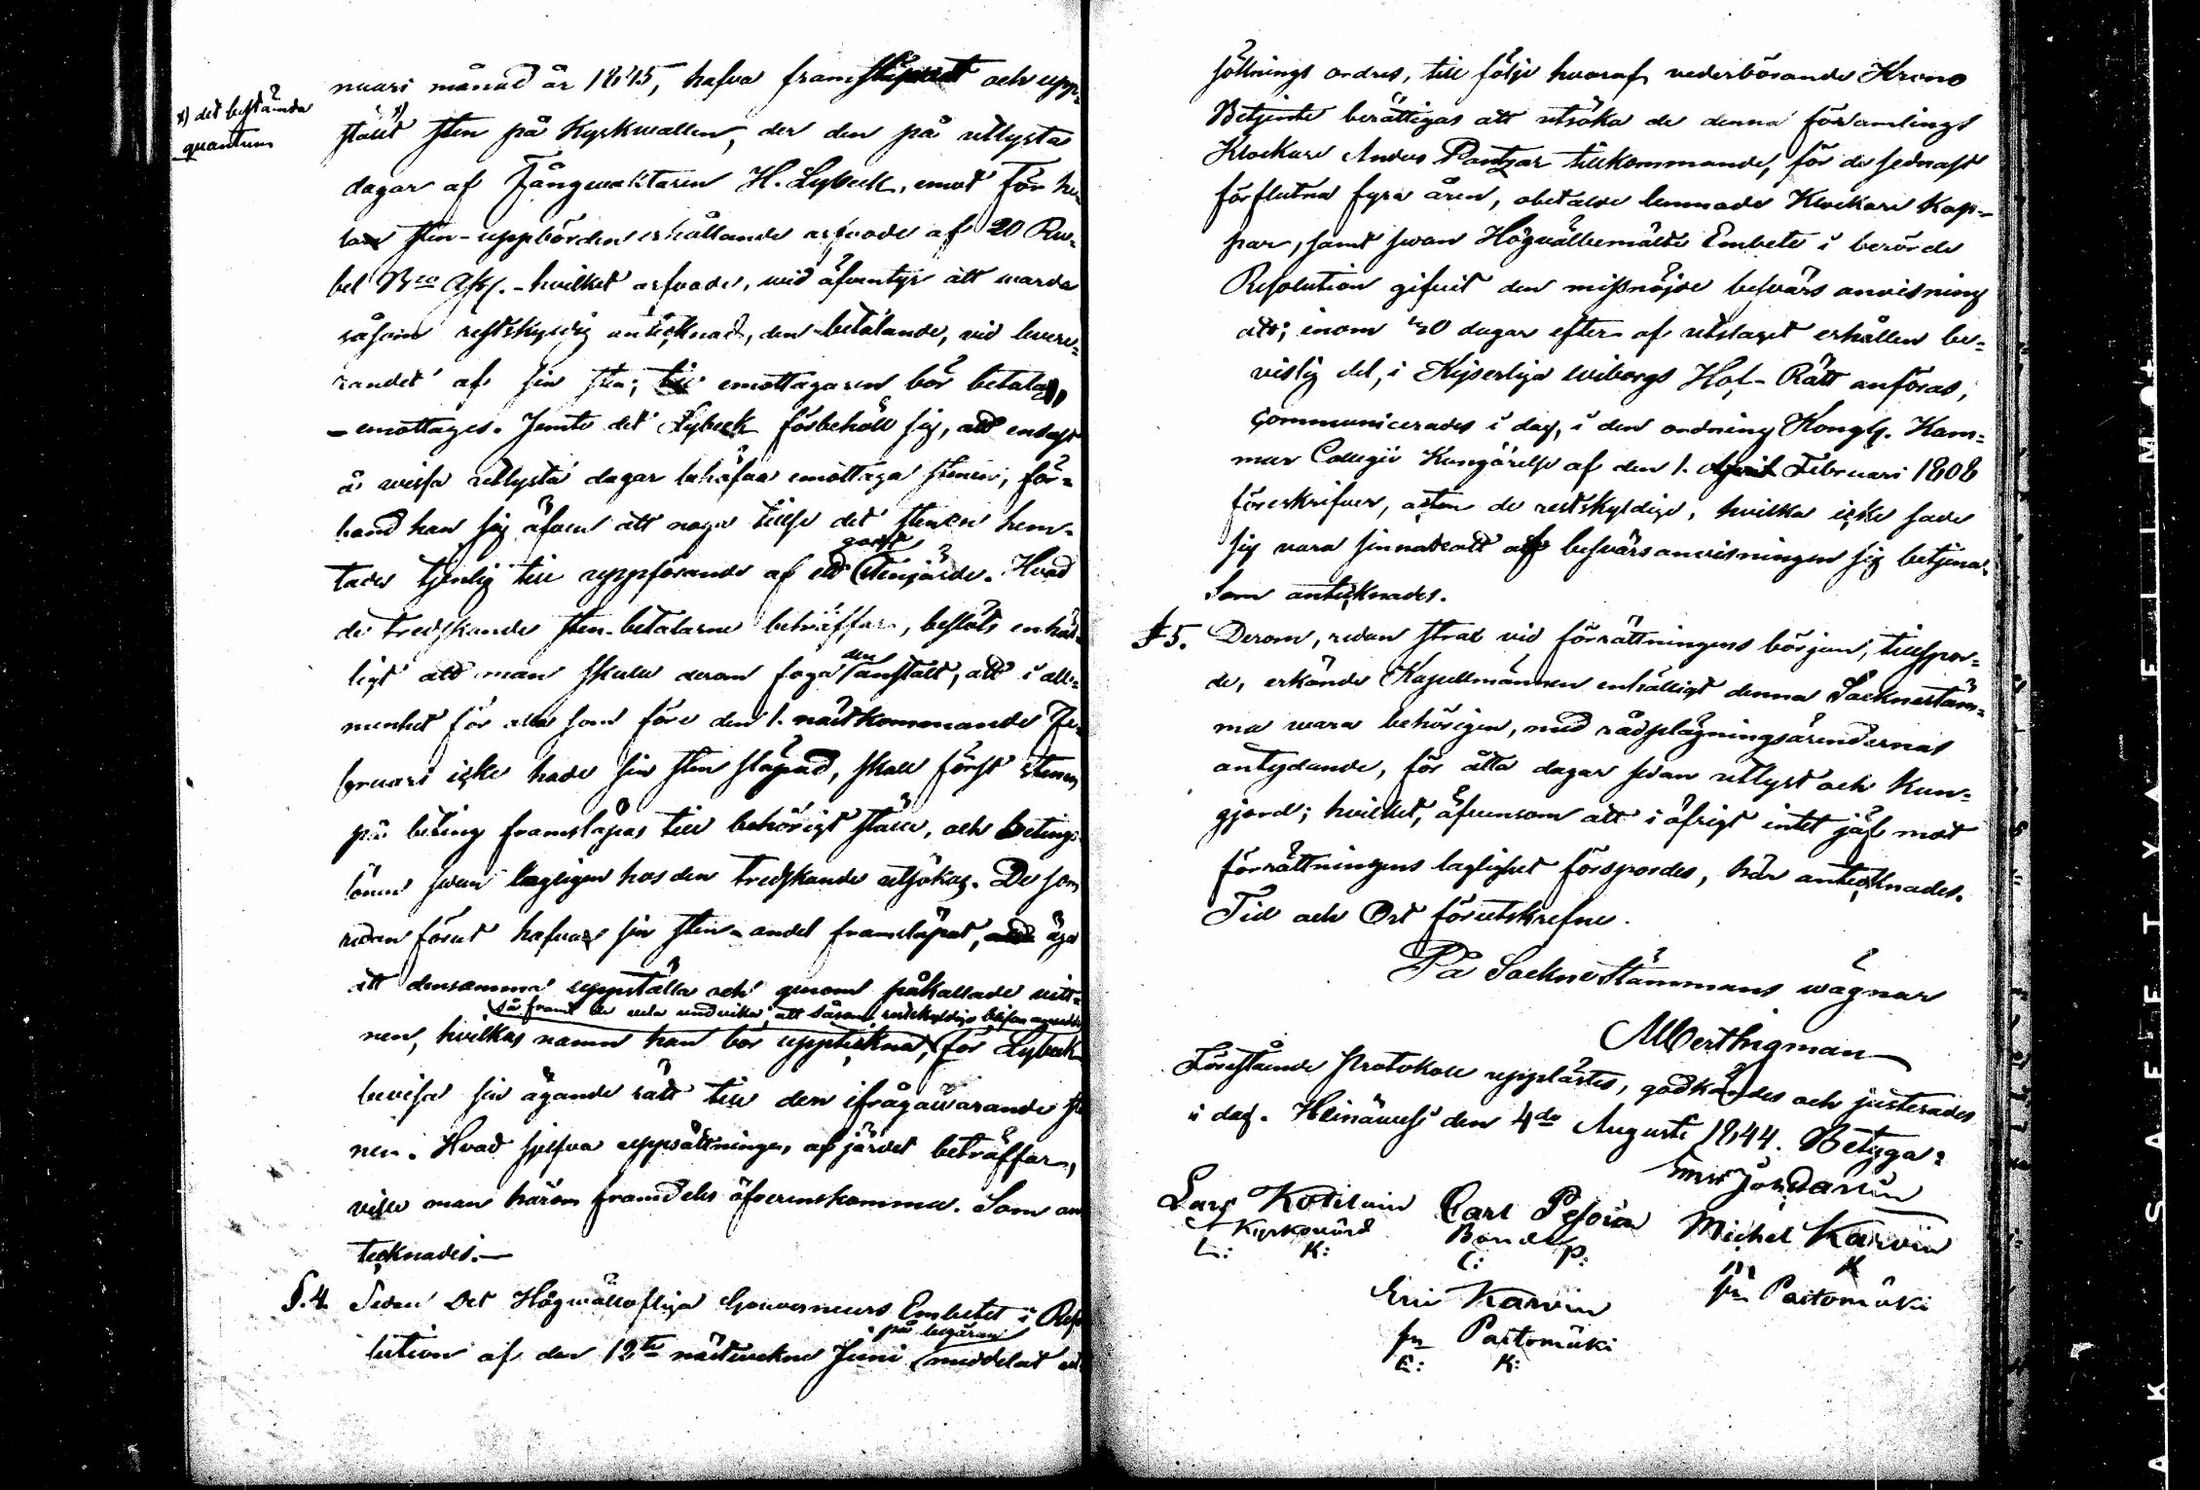 nuari månad år 1845, hafva framsläpat och upp-
x) det bestämda
quantum
stält x) sten på Kyrkwallen, der den på utlysta
dagar af Fångvaktaren H. Lybeck, emot för he-
la sten-uppbörden erhållande arfvode af 20 Ru-
bel Bco Ass. - hvilket arfvode, wid äfventyr att warda
såsom restskyldig antecknad, den betalande, vid levere-
randet af sin sten, till emottagaren bör betala,
- emottages. Jemte det Lybeck förbehöll sig, att endast
å wissa utlysta dagar behöfva emottaga stenen, för-
band han sig äfven att noga tillse det stenen hem-
tades tjenlig till uppförande af ett godt Stengärde. Hvad
de tredskande sten-betalarne beträffar, beslöts enhäl-
ligt att man skulle derom foga den anstalt, att i all-
menhet för alla som före den 1. nästkommande Fe-
bruari icke hade sin sten släpad, skall först stenen
på beting framsläpas till behörigt ställe, och betings
lönen sedan lagligen hos den tredskande utsökas. De som
redan förut hafva sin sten-andel framsläpat, äga
att densamma uppställa och genom påkallade vitt-
så framt de vela undvika att såsom restskyldige blifva ansedde
nen, hvilkas namn han bör uppteckna, för Lybeck
bevisa sin ägande rätt till den ifrågavarande ste-
nen. Hvad sjelfva uppsättningen af järdet beträffar,
ville man härom framdeles öfverenskomma. Som an-
tecknades.
§. 4. Sedan Det Högwällofliga Gouverneurs Embetet i Reso-
på begäran
lution af den 12te nästvekne Juni meddelat ut-
söknings ordres, till följe hvaraf vederbörande Krono
Betjente berättigas att utsöka de denna församlings
Klockare Anders Pantzar tillkommande, för de sednast
förflutna fyra åren, obetalde lemnade Klockare Kap-
par, samt sedan Högvälbemälte Embete i berörde
Resolution gifvit den missnöjde besvärs anvisning
att, inom 30 dagar efter af utslaget erhållen be-
vislig del, i Kejserliga Wiborgs Hof-Rätt anföras,
communicerades i dag, i den ordning Kongl. Kam-
mar Collegii Kungörelse af den 1. Februari 1808
föreskrifver, åt de restskyldige, hvilka icke sade
sig vara sinnade att af besvärsanvisningen sig betjena.
Som antecknades.
§ 5. Derom, redan strax vid förrättningens början, tillspor-
de, erkände Kapellmännen enhälligt denna Socknestäm-
ma wara behörigen, med rådplägningsärendernas
antydande, för åtta dagar sedan utlyst och kun-
gjord; hvilket, äfvensom att i öfrigt intet jäf mot
förrättningens laglighet försports, här antecknades.
Tid och Ort förutskrefne.
På Sockne Stämmans wägnar
Förestående Protokoll upplästes, godkändes och justerades
i dag. Heinäwesi den 4de Augusti 1844. Betyga:
Lars Kotilain
Kyrkovärd
L: K:
Carl Pesoin
Bonde
C: P:
Michel Karvin
M K
frn Paitomäki
Eric Karvin
frn Paitomäki
E: K: